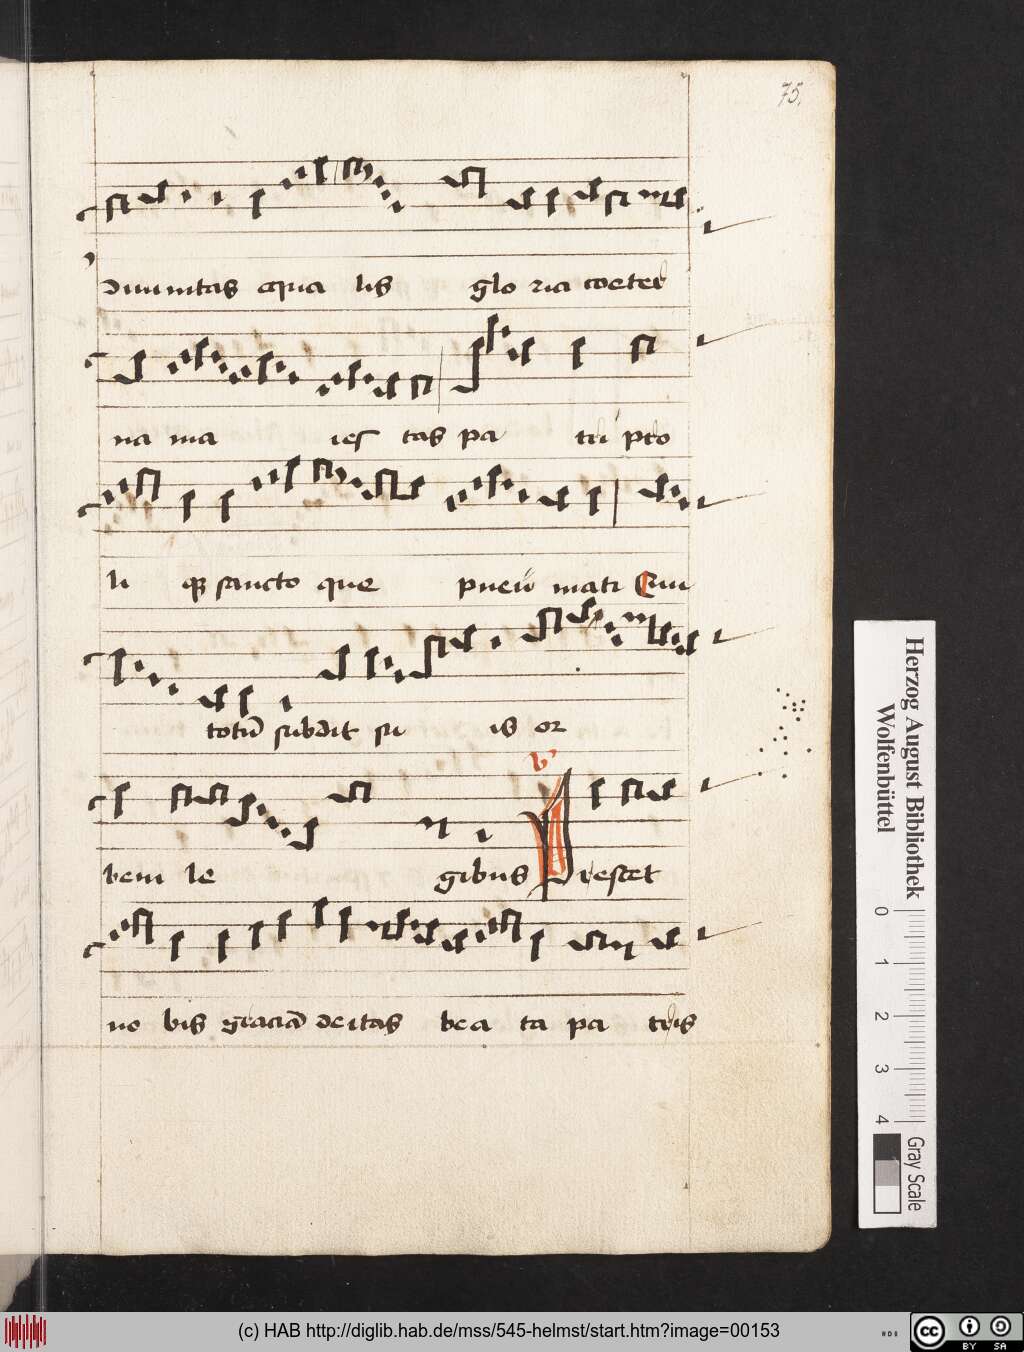 75.
Diuinitas equa lis glo ria coeter
na ma ies tas pa tri pro
li qz sancto que pneu mati Cui
totū subdit su is or
v'
bem le gibus Prestet
no bis graciā deitas bea ta pa tris
Herzog August Bibliothek
Wolfenbüttel
0 1 2 3 4
Gray Scale
(c) HAB http://diglib.hab.de/mss/545-helmst/start.htm?image=00153
cc BY SA